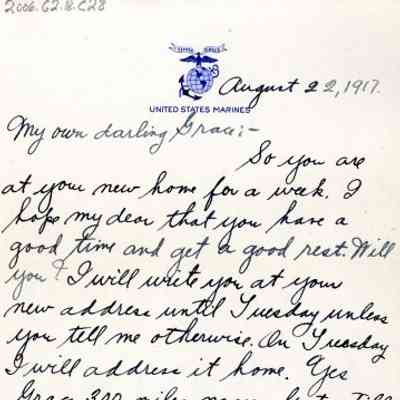 2006.62.8.C28
UNITED STATES MARINES
August 22, 1917.
My own darling Grace:-
So you are
at your new home for a week. I
hope my dear that you have a
good time and get a good rest. Will
you? I will write you at your
new address until Tuesday unless
you tell me otherwise. On Tuesday
I will address it home. Yes
Grace 300 miles